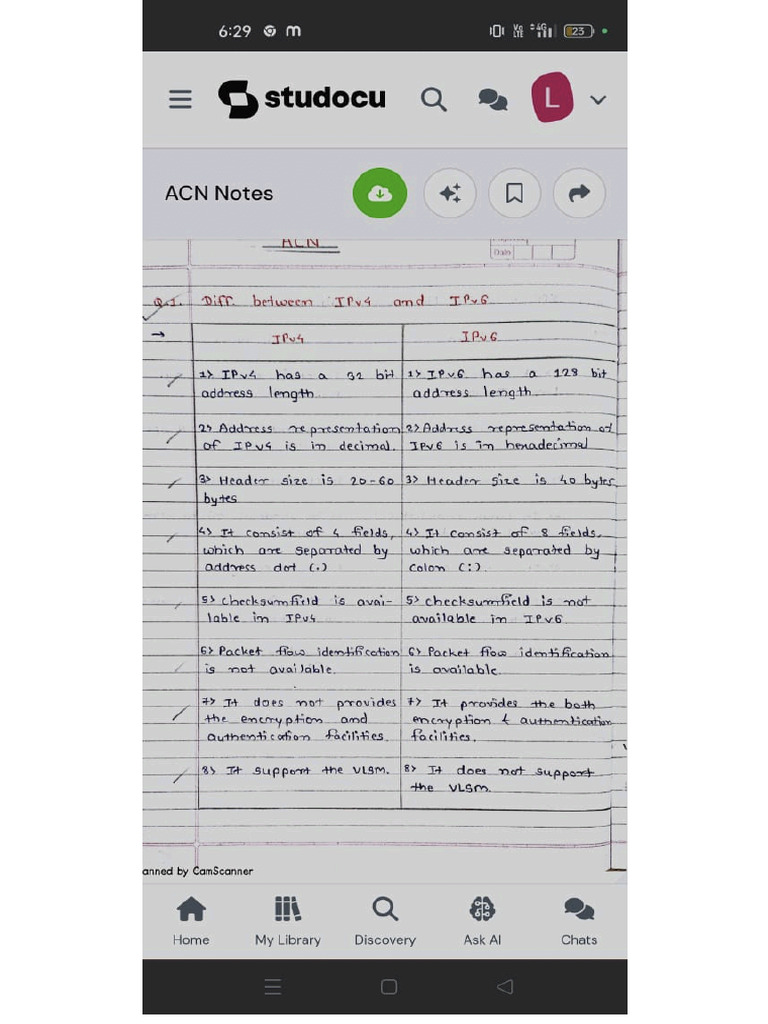 6:29 m Vo LTE 4G 23
studocu L
ACN Notes
ACN
Date
Q.1. Diff. between IPv4 and IPv6
→ IPv4 IPv6
1> IPv4 has a 32 bit
address length.
1> IPv6 has a 128 bit
address length.
2> Address representation
of IPv4 is in decimal.
2> Address representation of
IPv6 is in hexadecimal
3> Header size is 20-60
bytes
3> Header size is 40 bytes.
4> It consist of 4 fields,
which are separated by
address dot (.)
4> It consist of 8 fields,
which are separated by
colon (:).
5> checksumfield is avai-
lable in IPv4
5> checksumfield is not
available in IPv6.
6> Packet flow identification
is not available.
6> Packet flow identification
is available.
7> It does not provides
the encryption and
authentication facilities.
7> It provides the both
encryption & authentication
facilities.
8> It support the VLSM.
8> It does not support
the VLSM.
anned by CamScanner
Home My Library Discovery Ask AI Chats